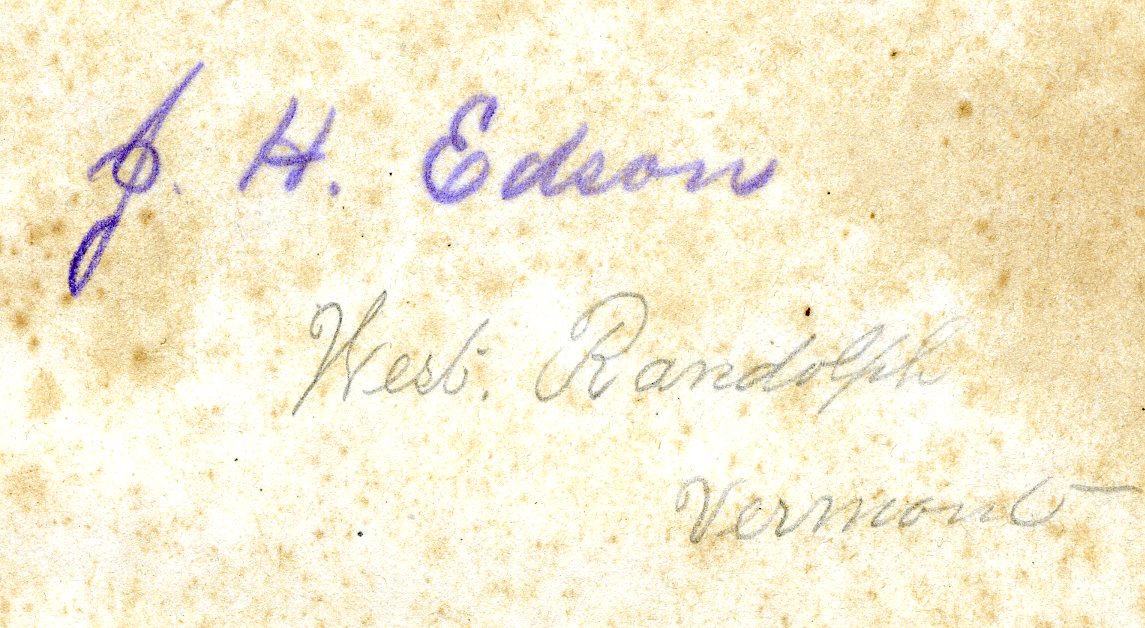 J. H. Edson
West. Randolph
Vermont